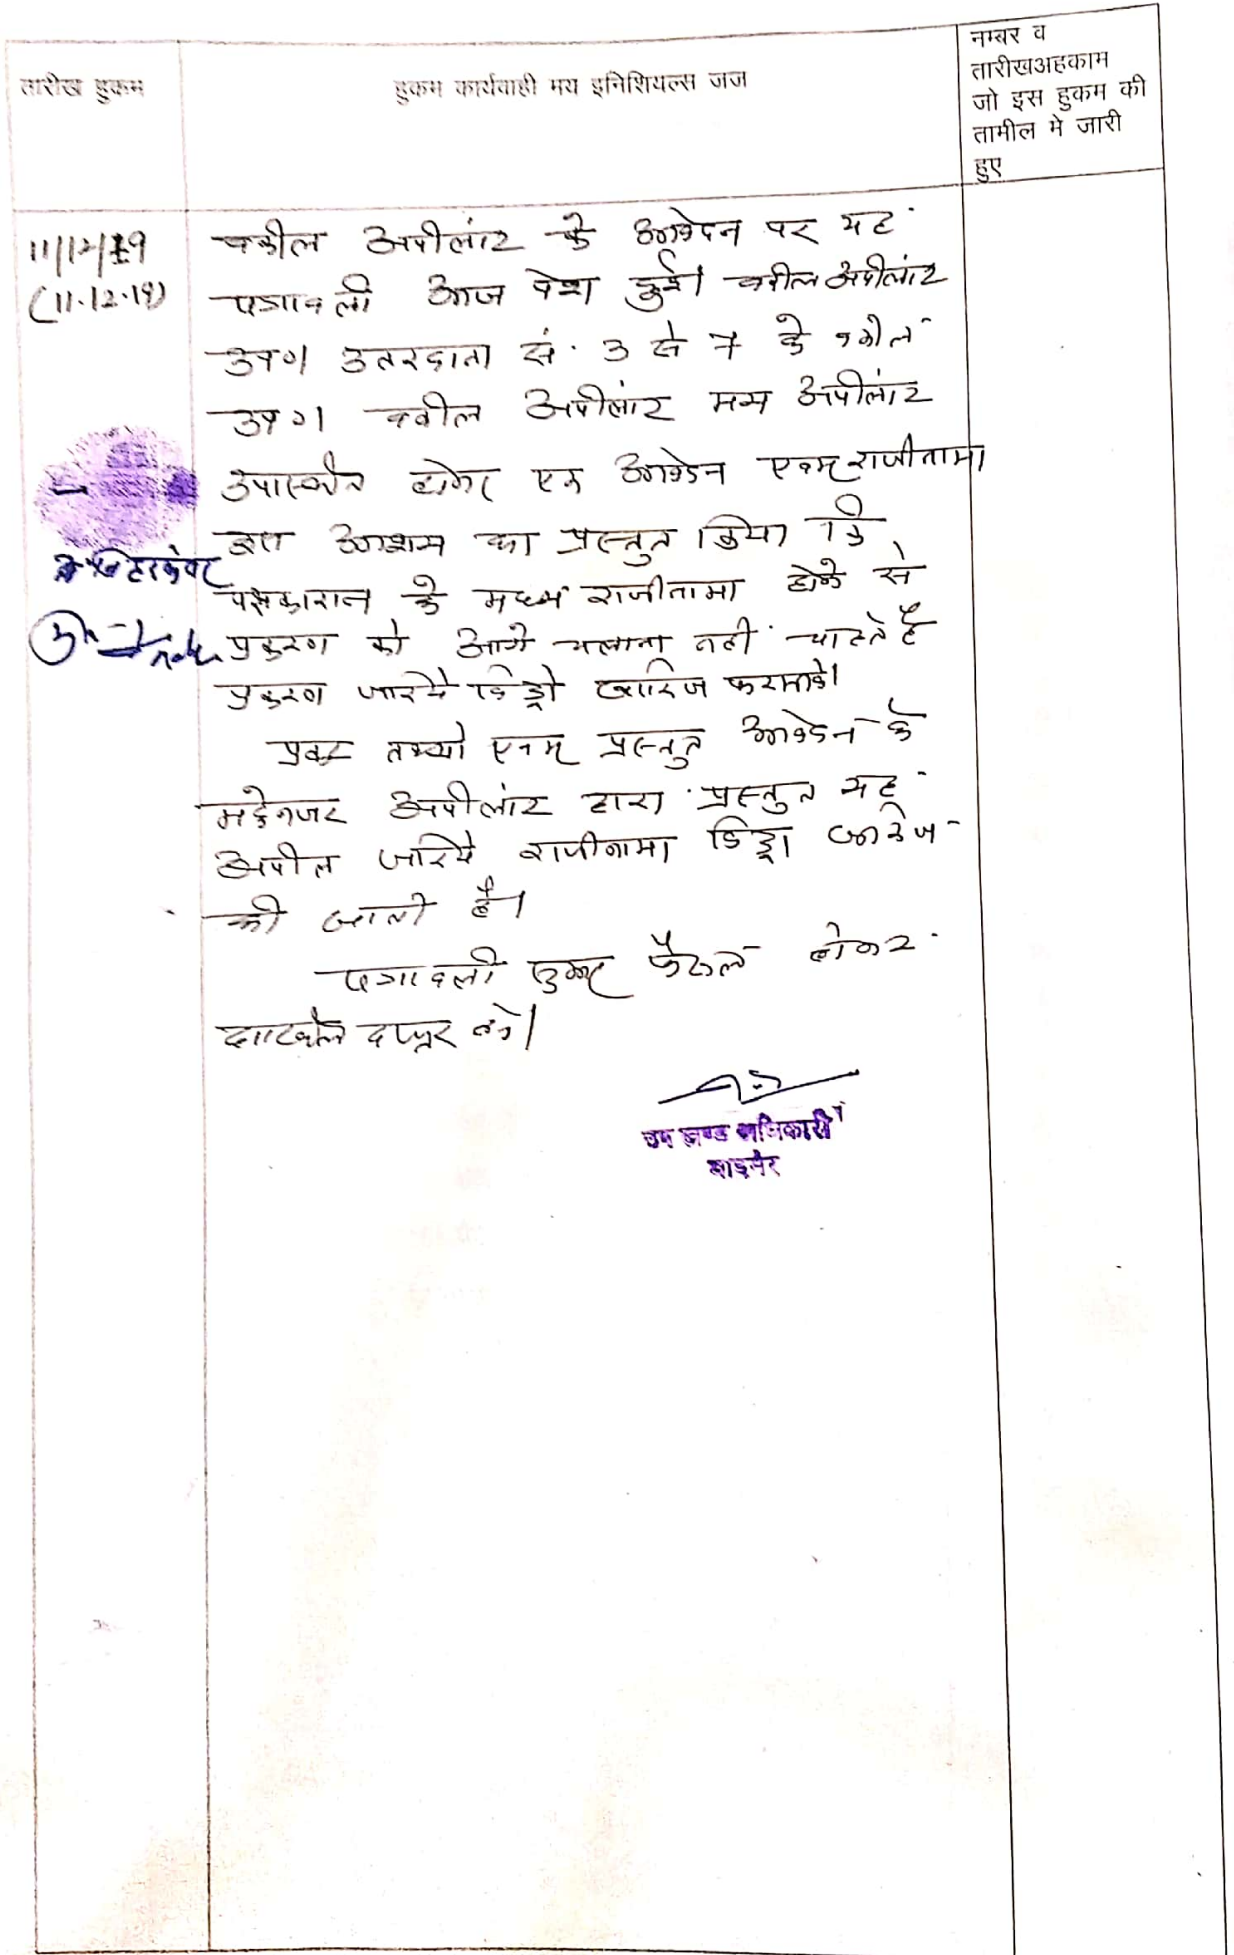 तारीख हुकम
हुकम कार्यवाही मय इनिशियल्स जज
नम्बर व
तारीखअहकाम
जो इस हुकम की
तामील मे जारी
हुए
11/12/19
(11.12.19)
वकील अपीलांट के आवेदन पर यह
पत्रावली आज पेश हुई। वकील अपीलांट
उप० उतरदाता सं. 3 से 7 के वकील
उप० वकील अपीलांट मय अपीलांट
उपस्थित होकर एक आवेदन एवम् राजीनामा
इस आशय का प्रस्तुत किया कि
पक्षकारान के मध्य राजीनामा होने से
प्रकरण को आगे चलाना नही चाहते है
प्रकरण जरिये विड्रो खारिज फरमावे।
प्रकट तथ्यो एवम् प्रस्तुत आवेदन के
मद्देनजर अपीलांट द्वारा प्रस्तुत यह
अपील जरिये राजीनामा विड्रा खारिज
की जाती है।
पत्रावली फैसल होकर
दाखिल दफ्तर हो।
उप खण्ड अधिकारी
बाड़मेर